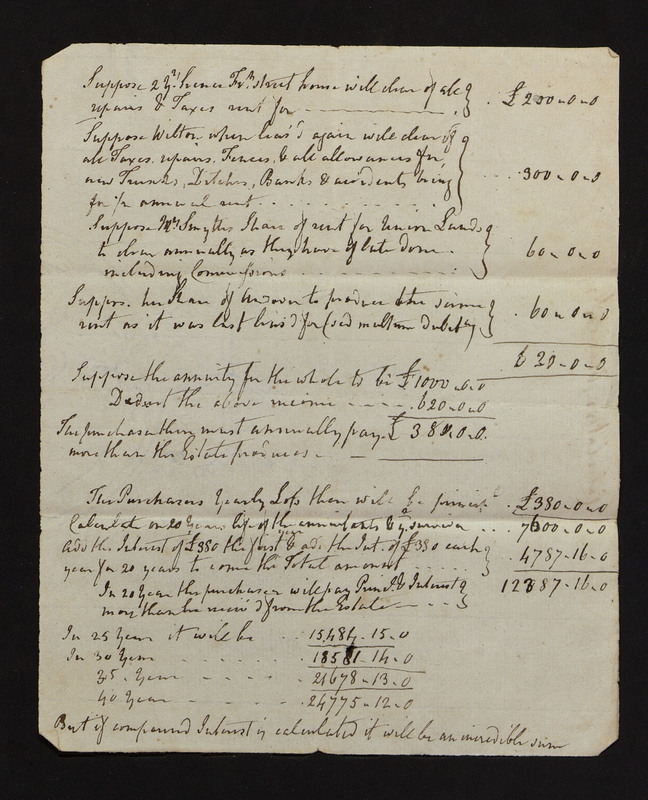 Suppose 2 Yrs hence Fr. street house will clear of all
repairs & Taxes rent for £200-0-0
Suppose Wilton when leas'd again will clear of
all Taxes, repairs, Fences, & all allowances for
new Trunks, Ditches, Banks & accidents bring
for pr annual rent 300-0-0
Suppose Mrs Smyths Share of rent for Union Lands
to clear annually as they have of late done
including Commissions 60-0-0
Suppose her Share of to produce the same
rent as it was last leas'd for (sed multum dubito) 60-0-0
620-0-0
Suppose the annuity for the whole to be £1000-0-0
Deduct the above income 620-0-0
The purchaser then must annually pay £380-0-0
more than the Estate produces
The Purchasers Yearly Loss then will be £380-0-0
Calculate on 20 Years life of the annuitants & survivor 7600-0-0
add the Interest of £380 the first year & add the Int. of £380 each
year for 20 years to come the Total amount 4787-16-0
In 20 Year the purchaser will pay & Interest 12387-16-0
more than he receiv'd from the Estate
In 25 Year it will be 15484-15-0
In 30 Year 18581-14-0
35 Year 21678-13-0
40 Year 24775-12-0
But if compound Interest is calculated it will be an incredible sum